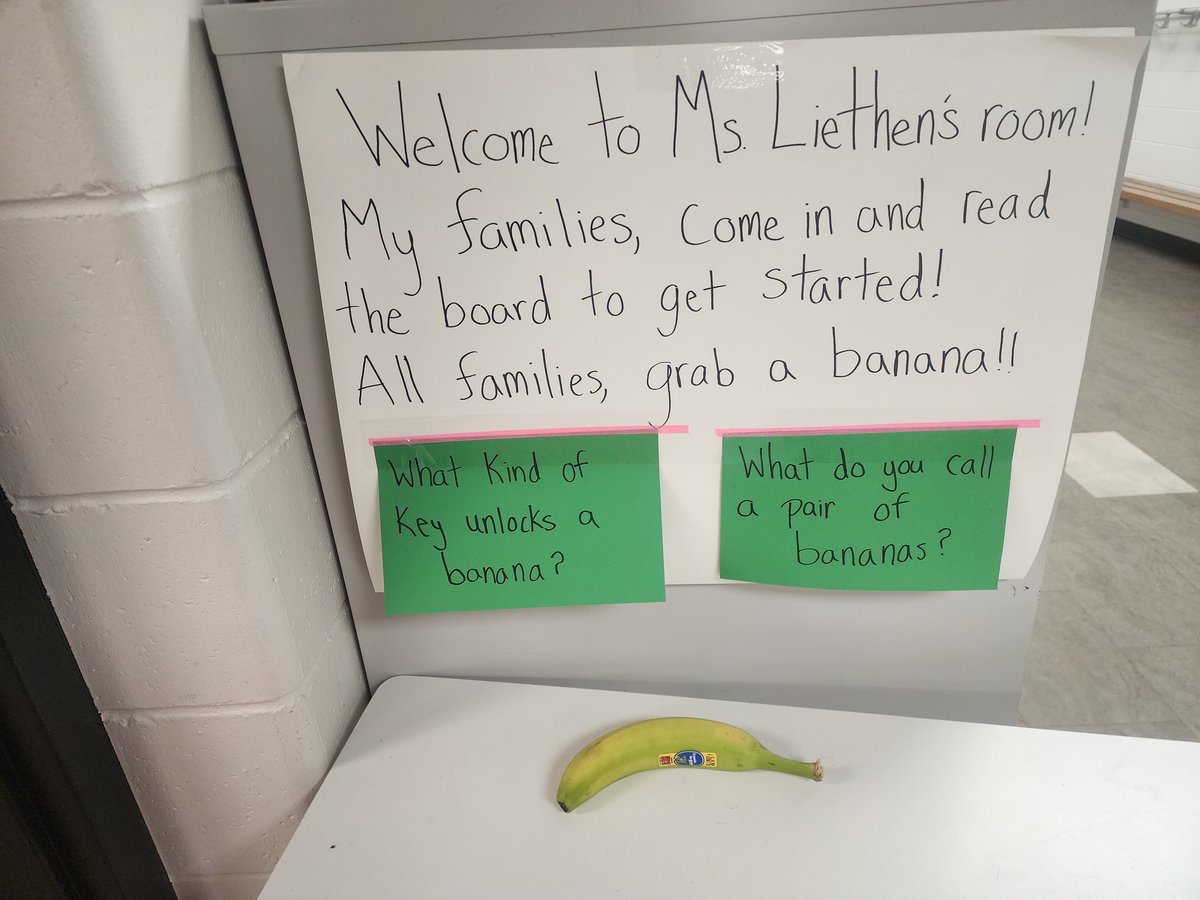 Welcome to Ms. Liethen's room!
My families, Come in and read
the board to get started!
All families, grab a banana!!
What Kind of
Key unlocks a
banana?
What do you call
a pair of
bananas?